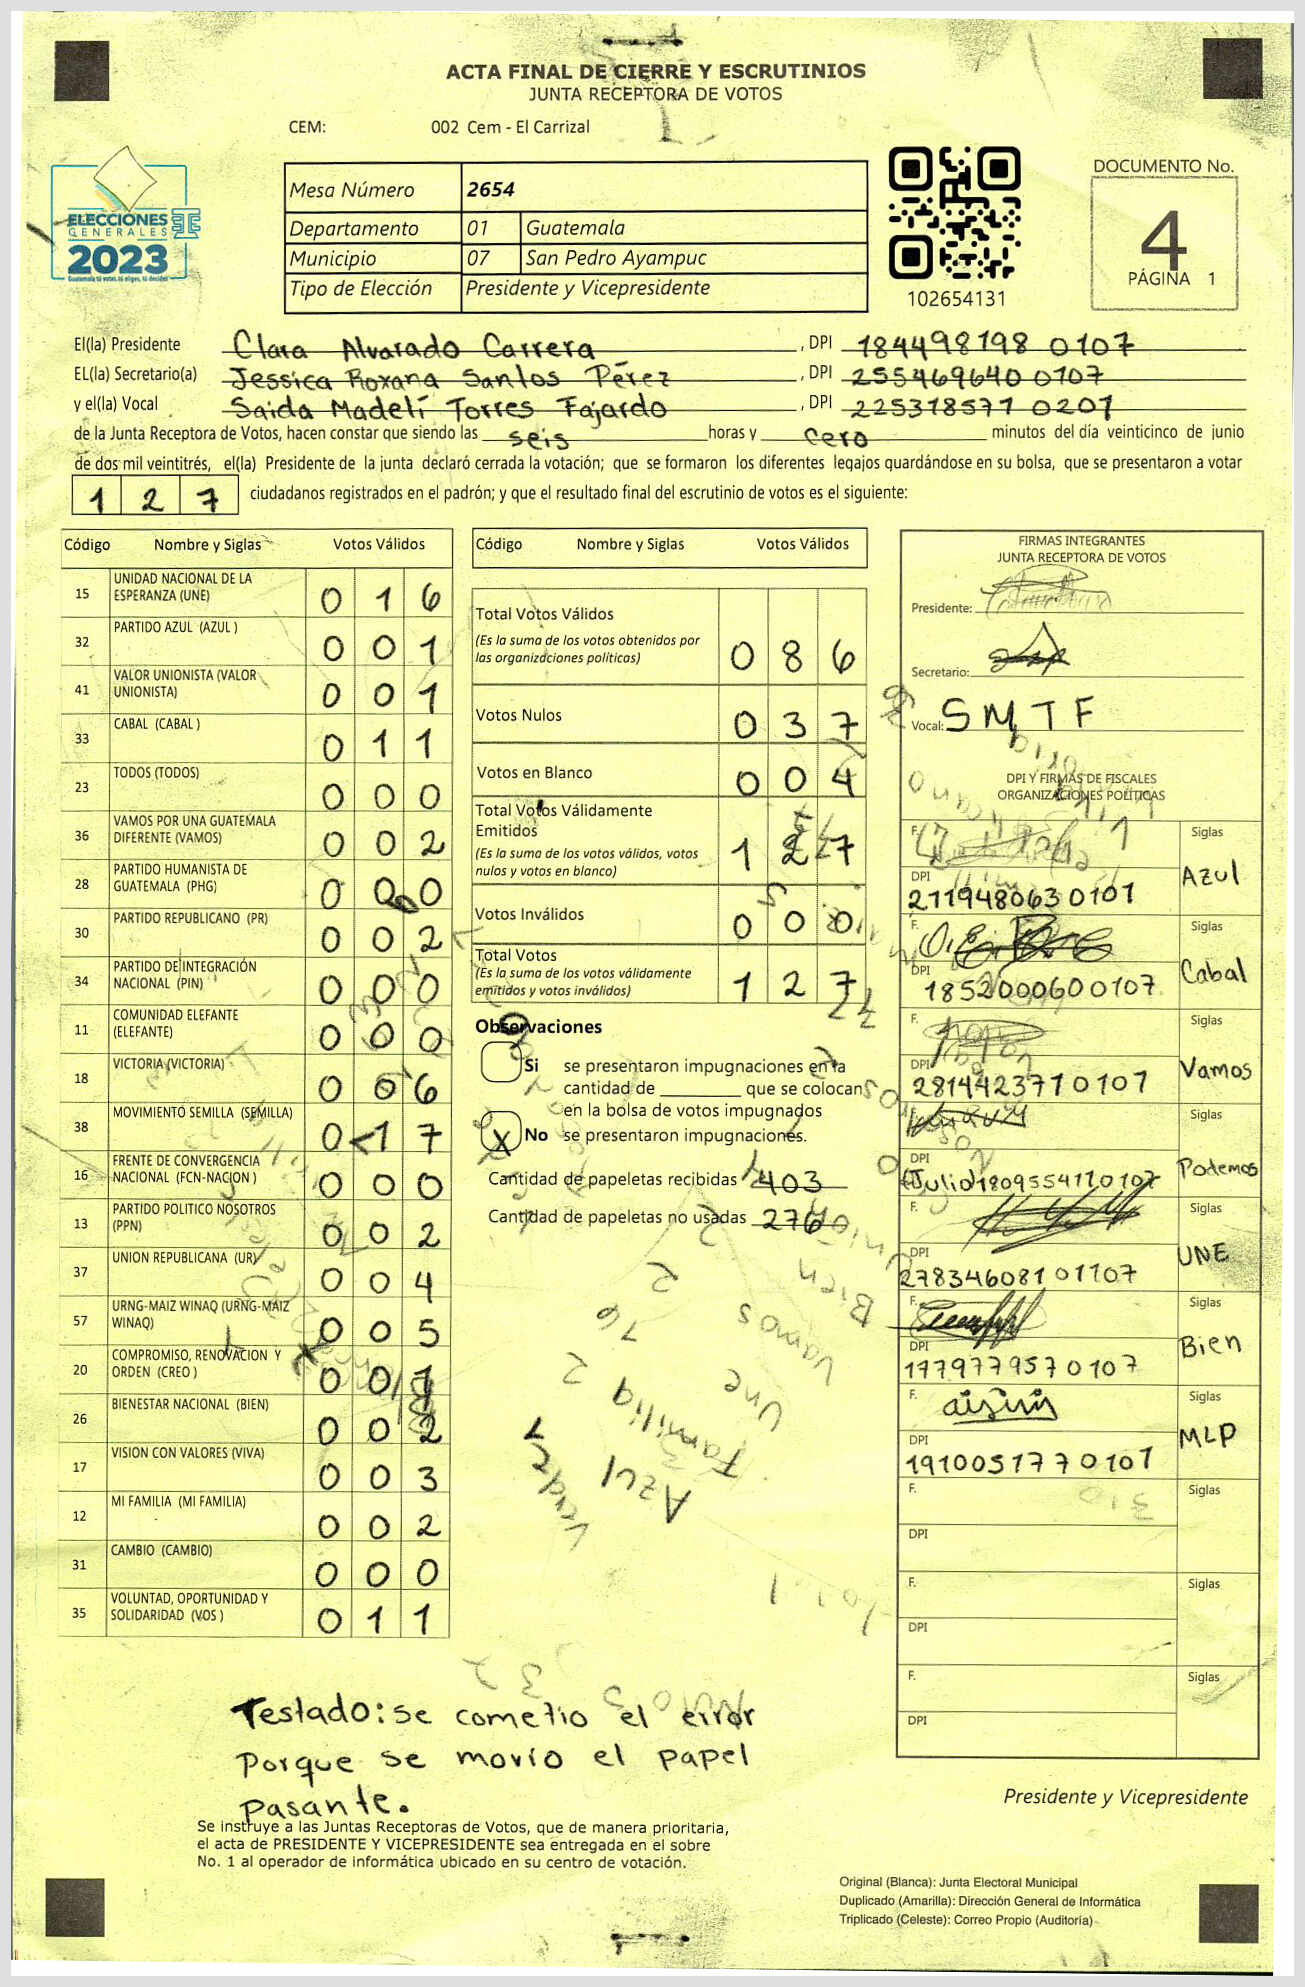 ACTA FINAL DE CIERRE Y ESCRUTINIOS
JUNTA RECEPTORA DE VOTOS
CEM: 002 Cem - El Carrizal
ELECCIONES
GENERALES
2023
Guatemala tú votas, tú eliges, tú decides
Mesa Número 2654
Departamento 01 Guatemala
Municipio 07 San Pedro Ayampuc
Tipo de Elección Presidente y Vicepresidente
102654131
DOCUMENTO No.
4
PÁGINA 1
El(la) Presidente Clara Alvarado Carrera , DPI 184498198 0107
EL(la) Secretario(a) Jessica Roxana Santos Pérez , DPI 255469640 0107
y el(la) Vocal Saida Madelí Torres Fajardo , DPI 225318571 0201
de la Junta Receptora de Votos, hacen constar que siendo las seis horas y cero minutos del día veinticinco de junio
de dos mil veintitrés, el(la) Presidente de la junta declaró cerrada la votación; que se formaron los diferentes legajos quardándose en su bolsa, que se presentaron a votar
1 2 7 ciudadanos registrados en el padrón; y que el resultado final del escrutinio de votos es el siguiente:
Código Nombre y Siglas Votos Válidos
15 UNIDAD NACIONAL DE LA ESPERANZA (UNE) 0 1 6
32 PARTIDO AZUL (AZUL ) 0 0 1
41 VALOR UNIONISTA (VALOR UNIONISTA) 0 0 1
33 CABAL (CABAL ) 0 1 1
23 TODOS (TODOS) 0 0 0
36 VAMOS POR UNA GUATEMALA DIFERENTE (VAMOS) 0 0 2
28 PARTIDO HUMANISTA DE GUATEMALA (PHG) 0 0 0
30 PARTIDO REPUBLICANO (PR) 0 0 2
34 PARTIDO DE INTEGRACIÓN NACIONAL (PIN) 0 0 0
11 COMUNIDAD ELEFANTE (ELEFANTE) 0 0 0
18 VICTORIA (VICTORIA) 0 0 6
38 MOVIMIENTO SEMILLA (SEMILLA) 0 1 7
16 FRENTE DE CONVERGENCIA NACIONAL (FCN-NACION ) 0 0 0
13 PARTIDO POLITICO NOSOTROS (PPN) 0 0 2
37 UNION REPUBLICANA (UR) 0 0 4
57 URNG-MAIZ WINAQ (URNG-MAIZ WINAQ) 0 0 5
20 COMPROMISO, RENOVACION Y ORDEN (CREO ) 0 0 1
26 BIENESTAR NACIONAL (BIEN) 0 0 2
17 VISION CON VALORES (VIVA) 0 0 3
12 MI FAMILIA (MI FAMILIA) 0 0 2
31 CAMBIO (CAMBIO) 0 0 0
35 VOLUNTAD, OPORTUNIDAD Y SOLIDARIDAD (VOS ) 0 1 1
Código Nombre y Siglas Votos Válidos
Total Votos Válidos 0 8 6
(Es la suma de los votos obtenidos por
las organizaciones políticas)
Votos Nulos 0 3 7
Votos en Blanco 0 0 4
Total Votos Válidamente
Emitidos 1 2 7
(Es la suma de los votos válidos, votos
nulos y votos en blanco)
Votos Inválidos 0 0 0
Total Votos
(Es la suma de los votos válidamente
emitidos y votos inválidos) 1 2 7
Observaciones
Si se presentaron impugnaciones en la
cantidad de que se colocan
en la bolsa de votos impugnados
X No se presentaron impugnaciones.
Cantidad de papeletas recibidas 403
Cantidad de papeletas no usadas 276
Verde 1
Azul
Familia 2
Une 16
Vamos 2
Bien 2
FIRMAS INTEGRANTES
JUNTA RECEPTORA DE VOTOS
Presidente:
Secretario:
Vocal: SMTF
DPI Y FIRMAS DE FISCALES
ORGANIZACIONES POLÍTICAS
F. Siglas
DPI 211948063 0101 Azul
F. Siglas
DPI 1852000600107 Cabal
F. Siglas
DPI 281442371 0101 Vamos
F. Siglas
DPI 180955411 0107 Podemos
F. Siglas
DPI 278346081 01107 UNE
F. Siglas
DPI 177977957 0107 Bien
F. Siglas
DPI 191005177 0101 MLP
F. Siglas
DPI
F. Siglas
DPI
F. Siglas
DPI
Testado: se cometio el error
Porque se movio el papel
pasante.
Presidente y Vicepresidente
Se instruye a las Juntas Receptoras de Votos, que de manera prioritaria,
el acta de PRESIDENTE Y VICEPRESIDENTE sea entregada en el sobre
No. 1 al operador de informática ubicado en su centro de votación.
Original (Blanca): Junta Electoral Municipal
Duplicado (Amarilla): Dirección General de Informática
Triplicado (Celeste): Correo Propio (Auditoría)